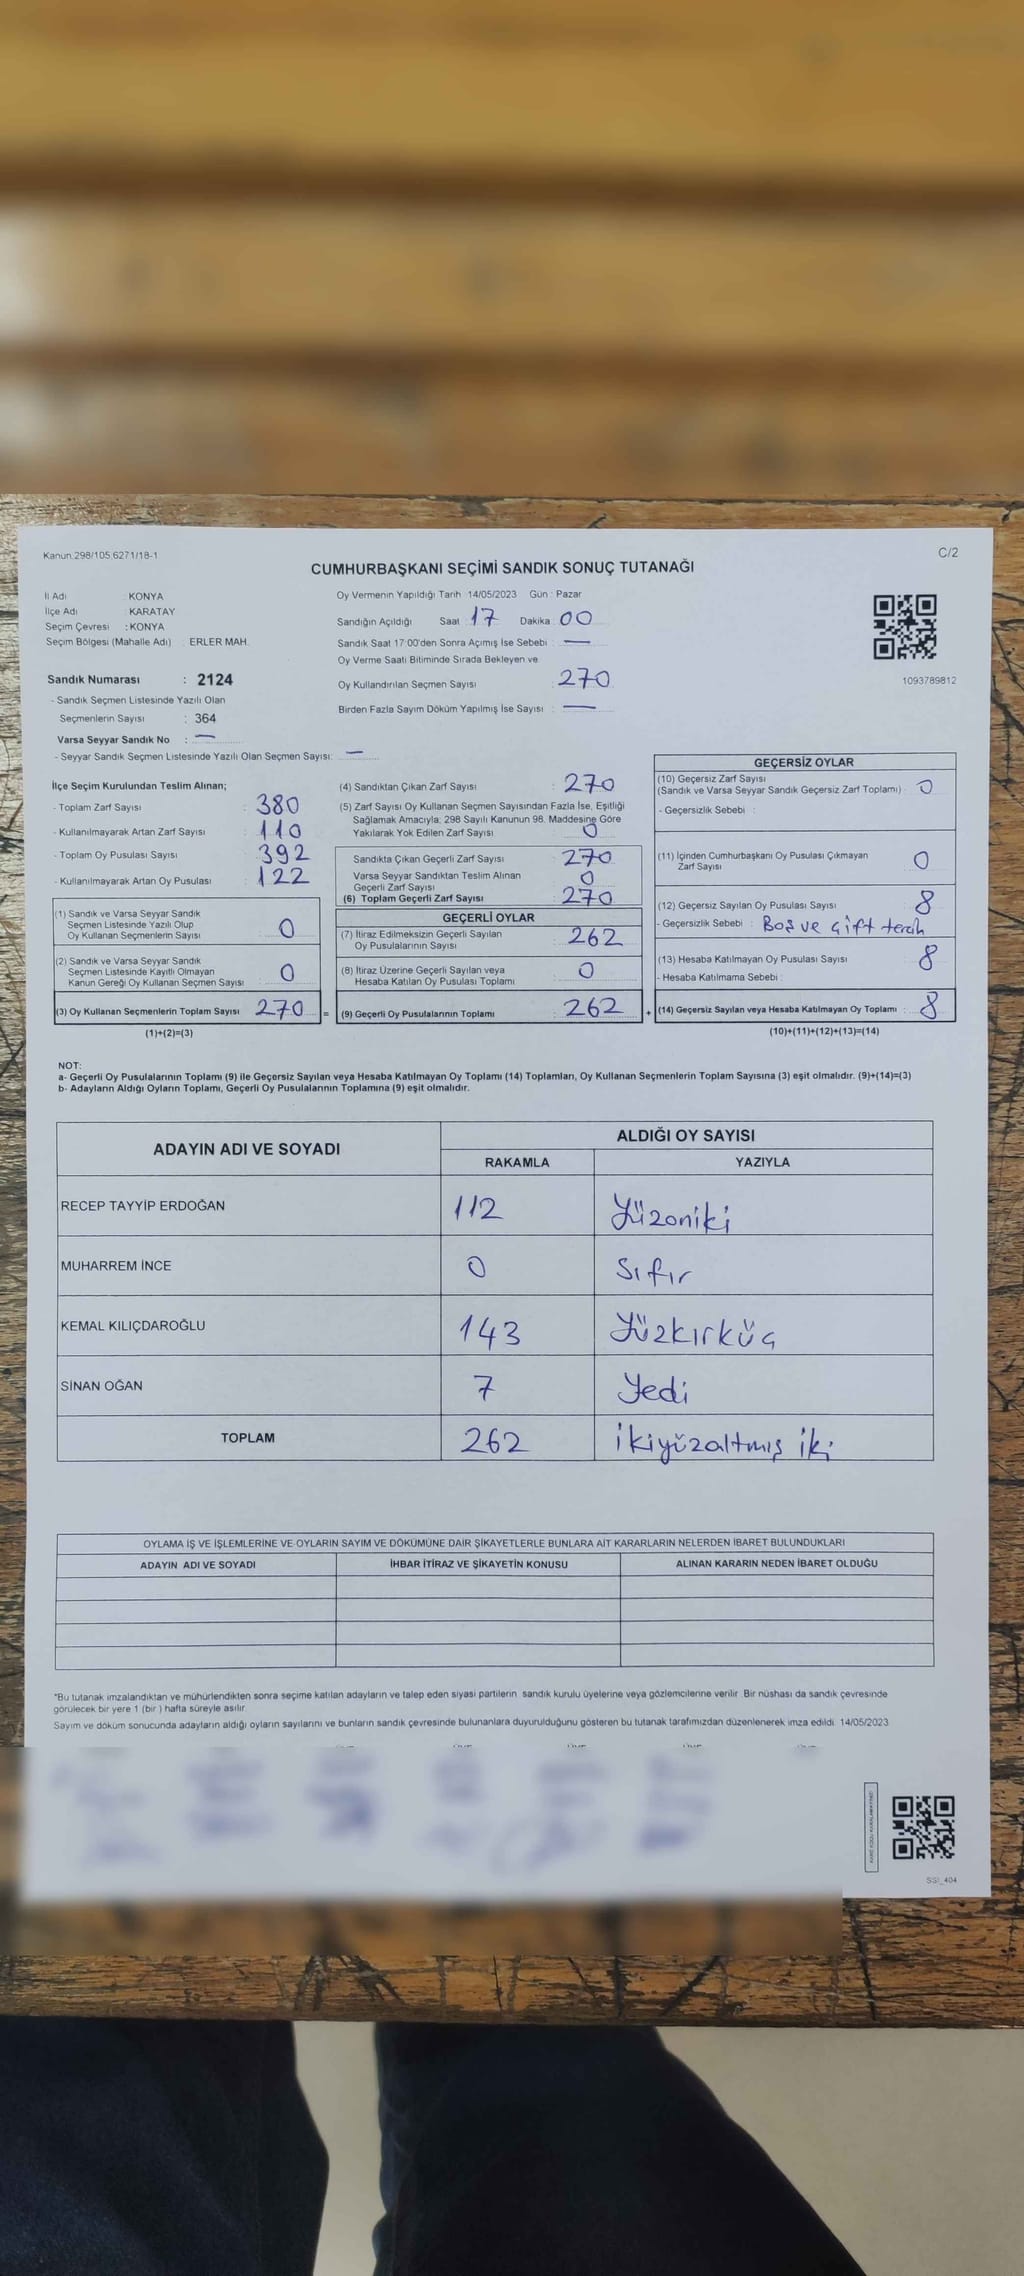 Kanun.298/105,6271/18-1
C/2
CUMHURBAŞKANI SEÇİMİ SANDIK SONUÇ TUTANAĞI
İl Adı : KONYA
İlçe Adı : KARATAY
Seçim Çevresi : KONYA
Seçim Bölgesi (Mahalle Adı) : ERLER MAH.
Sandık Numarası : 2124
- Sandık Seçmen Listesinde Yazılı Olan
Seçmenlerin Sayısı : 364
Varsa Seyyar Sandık No : —
- Seyyar Sandık Seçmen Listesinde Yazılı Olan Seçmen Sayısı: —
Oy Vermenin Yapıldığı Tarih 14/05/2023 Gün : Pazar
Sandığın Açıldığı Saat : 17 Dakika : 00
Sandık Saat 17:00'den Sonra Açımış İse Sebebi : —
Oy Verme Saati Bitiminde Sırada Bekleyen ve
Oy Kullandırılan Seçmen Sayısı : 270
Birden Fazla Sayım Döküm Yapılmış İse Sayısı : —
1093789812
İlçe Seçim Kurulundan Teslim Alınan;
- Toplam Zarf Sayısı : 380
- Kullanılmayarak Artan Zarf Sayısı : 110
- Toplam Oy Pusulası Sayısı : 392
- Kullanılmayarak Artan Oy Pusulası : 122
(1) Sandık ve Varsa Seyyar Sandık
Seçmen Listesinde Yazılı Olup
Oy Kullanan Seçmenlerin Sayısı : 0
(2) Sandık ve Varsa Seyyar Sandık
Seçmen Listesinde Kayıtlı Olmayan
Kanun Gereği Oy Kullanan Seçmen Sayısı : 0
(3) Oy Kullanan Seçmenlerin Toplam Sayısı : 270 =
(1)+(2)=(3)
(4) Sandıktan Çıkan Zarf Sayısı : 270
(5) Zarf Sayısı Oy Kullanan Seçmen Sayısından Fazla İse, Eşitliği
Sağlamak Amacıyla; 298 Sayılı Kanunun 98. Maddesine Göre
Yakılarak Yok Edilen Zarf Sayısı : 0
Sandıkta Çıkan Geçerli Zarf Sayısı : 270
Varsa Seyyar Sandıktan Teslim Alınan
Geçerli Zarf Sayısı : 0
(6) Toplam Geçerli Zarf Sayısı : 270
GEÇERLİ OYLAR
(7) İtiraz Edilmeksizin Geçerli Sayılan
Oy Pusulalarının Sayısı : 262
(8) İtiraz Üzerine Geçerli Sayılan veya
Hesaba Katılan Oy Pusulası Toplamı : 0
(9) Geçerli Oy Pusulalarının Toplamı : 262 +
GEÇERSİZ OYLAR
(10) Geçersiz Zarf Sayısı
(Sandık ve Varsa Seyyar Sandık Geçersiz Zarf Toplamı) : 0
- Geçersizlik Sebebi :
(11) İçinden Cumhurbaşkanı Oy Pusulası Çıkmayan
Zarf Sayısı : 0
(12) Geçersiz Sayılan Oy Pusulası Sayısı : 8
- Geçersizlik Sebebi : Boş ve çift tercih
(13) Hesaba Katılmayan Oy Pusulası Sayısı : 8
- Hesaba Katılmama Sebebi :
(14) Geçersiz Sayılan veya Hesaba Katılmayan Oy Toplamı : 8
(10)+(11)+(12)+(13)=(14)
NOT:
a- Geçerli Oy Pusulalarının Toplamı (9) ile Geçersiz Sayılan veya Hesaba Katılmayan Oy Toplamı (14) Toplamları, Oy Kullanan Seçmenlerin Toplam Sayısına (3) eşit olmalıdır. (9)+(14)=(3)
b- Adayların Aldığı Oyların Toplamı, Geçerli Oy Pusulalarının Toplamına (9) eşit olmalıdır.
ADAYIN ADI VE SOYADI
ALDIĞI OY SAYISI
RAKAMLA YAZIYLA
RECEP TAYYİP ERDOĞAN 112 Yüzoniki
MUHARREM İNCE 0 Sıfır
KEMAL KILIÇDAROĞLU 143 Yüzkırküç
SİNAN OĞAN 7 Yedi
TOPLAM 262 ikiyüzaltmış iki
OYLAMA İŞ VE İŞLEMLERİNE VE OYLARIN SAYIM VE DÖKÜMÜNE DAİR ŞİKAYETLERLE BUNLARA AİT KARARLARIN NELERDEN İBARET BULUNDUKLARI
ADAYIN ADI VE SOYADI İHBAR İTİRAZ VE ŞİKAYETİN KONUSU ALINAN KARARIN NEDEN İBARET OLDUĞU
*Bu tutanak imzalandıktan ve mühürlendikten sonra seçime katılan adayların ve talep eden siyasi partilerin sandık kurulu üyelerine veya gözlemcilerine verilir. Bir nüshası da sandık çevresinde
görülecek bir yere 1 (bir ) hafta süreyle asılır.
Sayım ve döküm sonucunda adayların aldığı oyların sayılarını ve bunların sandık çevresinde bulunanlara duyurulduğunu gösteren bu tutanak tarafımızdan düzenlenerek imza edildi. 14/05/2023
SSI_404